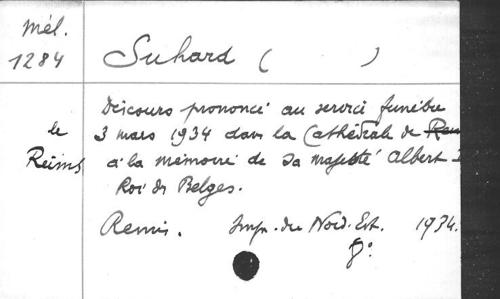 Mél.
1284
Suhard ( )
Discours prononcé au service funèbre
le 3 mars 1934 dans la Cathédrale de
Reims à la mémoire de Sa majesté Albert I
Roi des Belges.
Reims. Imp. du Nord-Est. 1934.
8°.